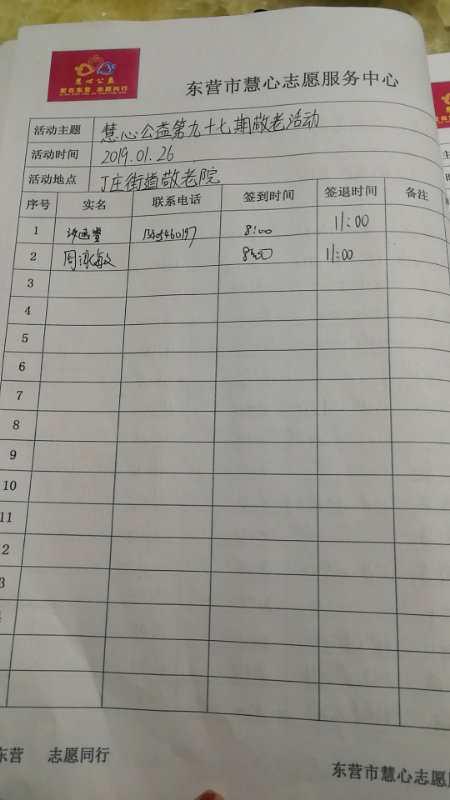 慧心公益
爱在东营 志愿同行
东营市慧心志愿服务中心
活动主题 慧心公益第九十七期敬老活动
活动时间 2019.01.26
活动地点 丁庄街道敬老院
序号 实名 联系电话 签到时间 签退时间 备注
1 8:00 11:00
2 11:00
3
4
5
6
7
8
9
10
11
2
3
东营 志愿同行
东营市慧心志愿